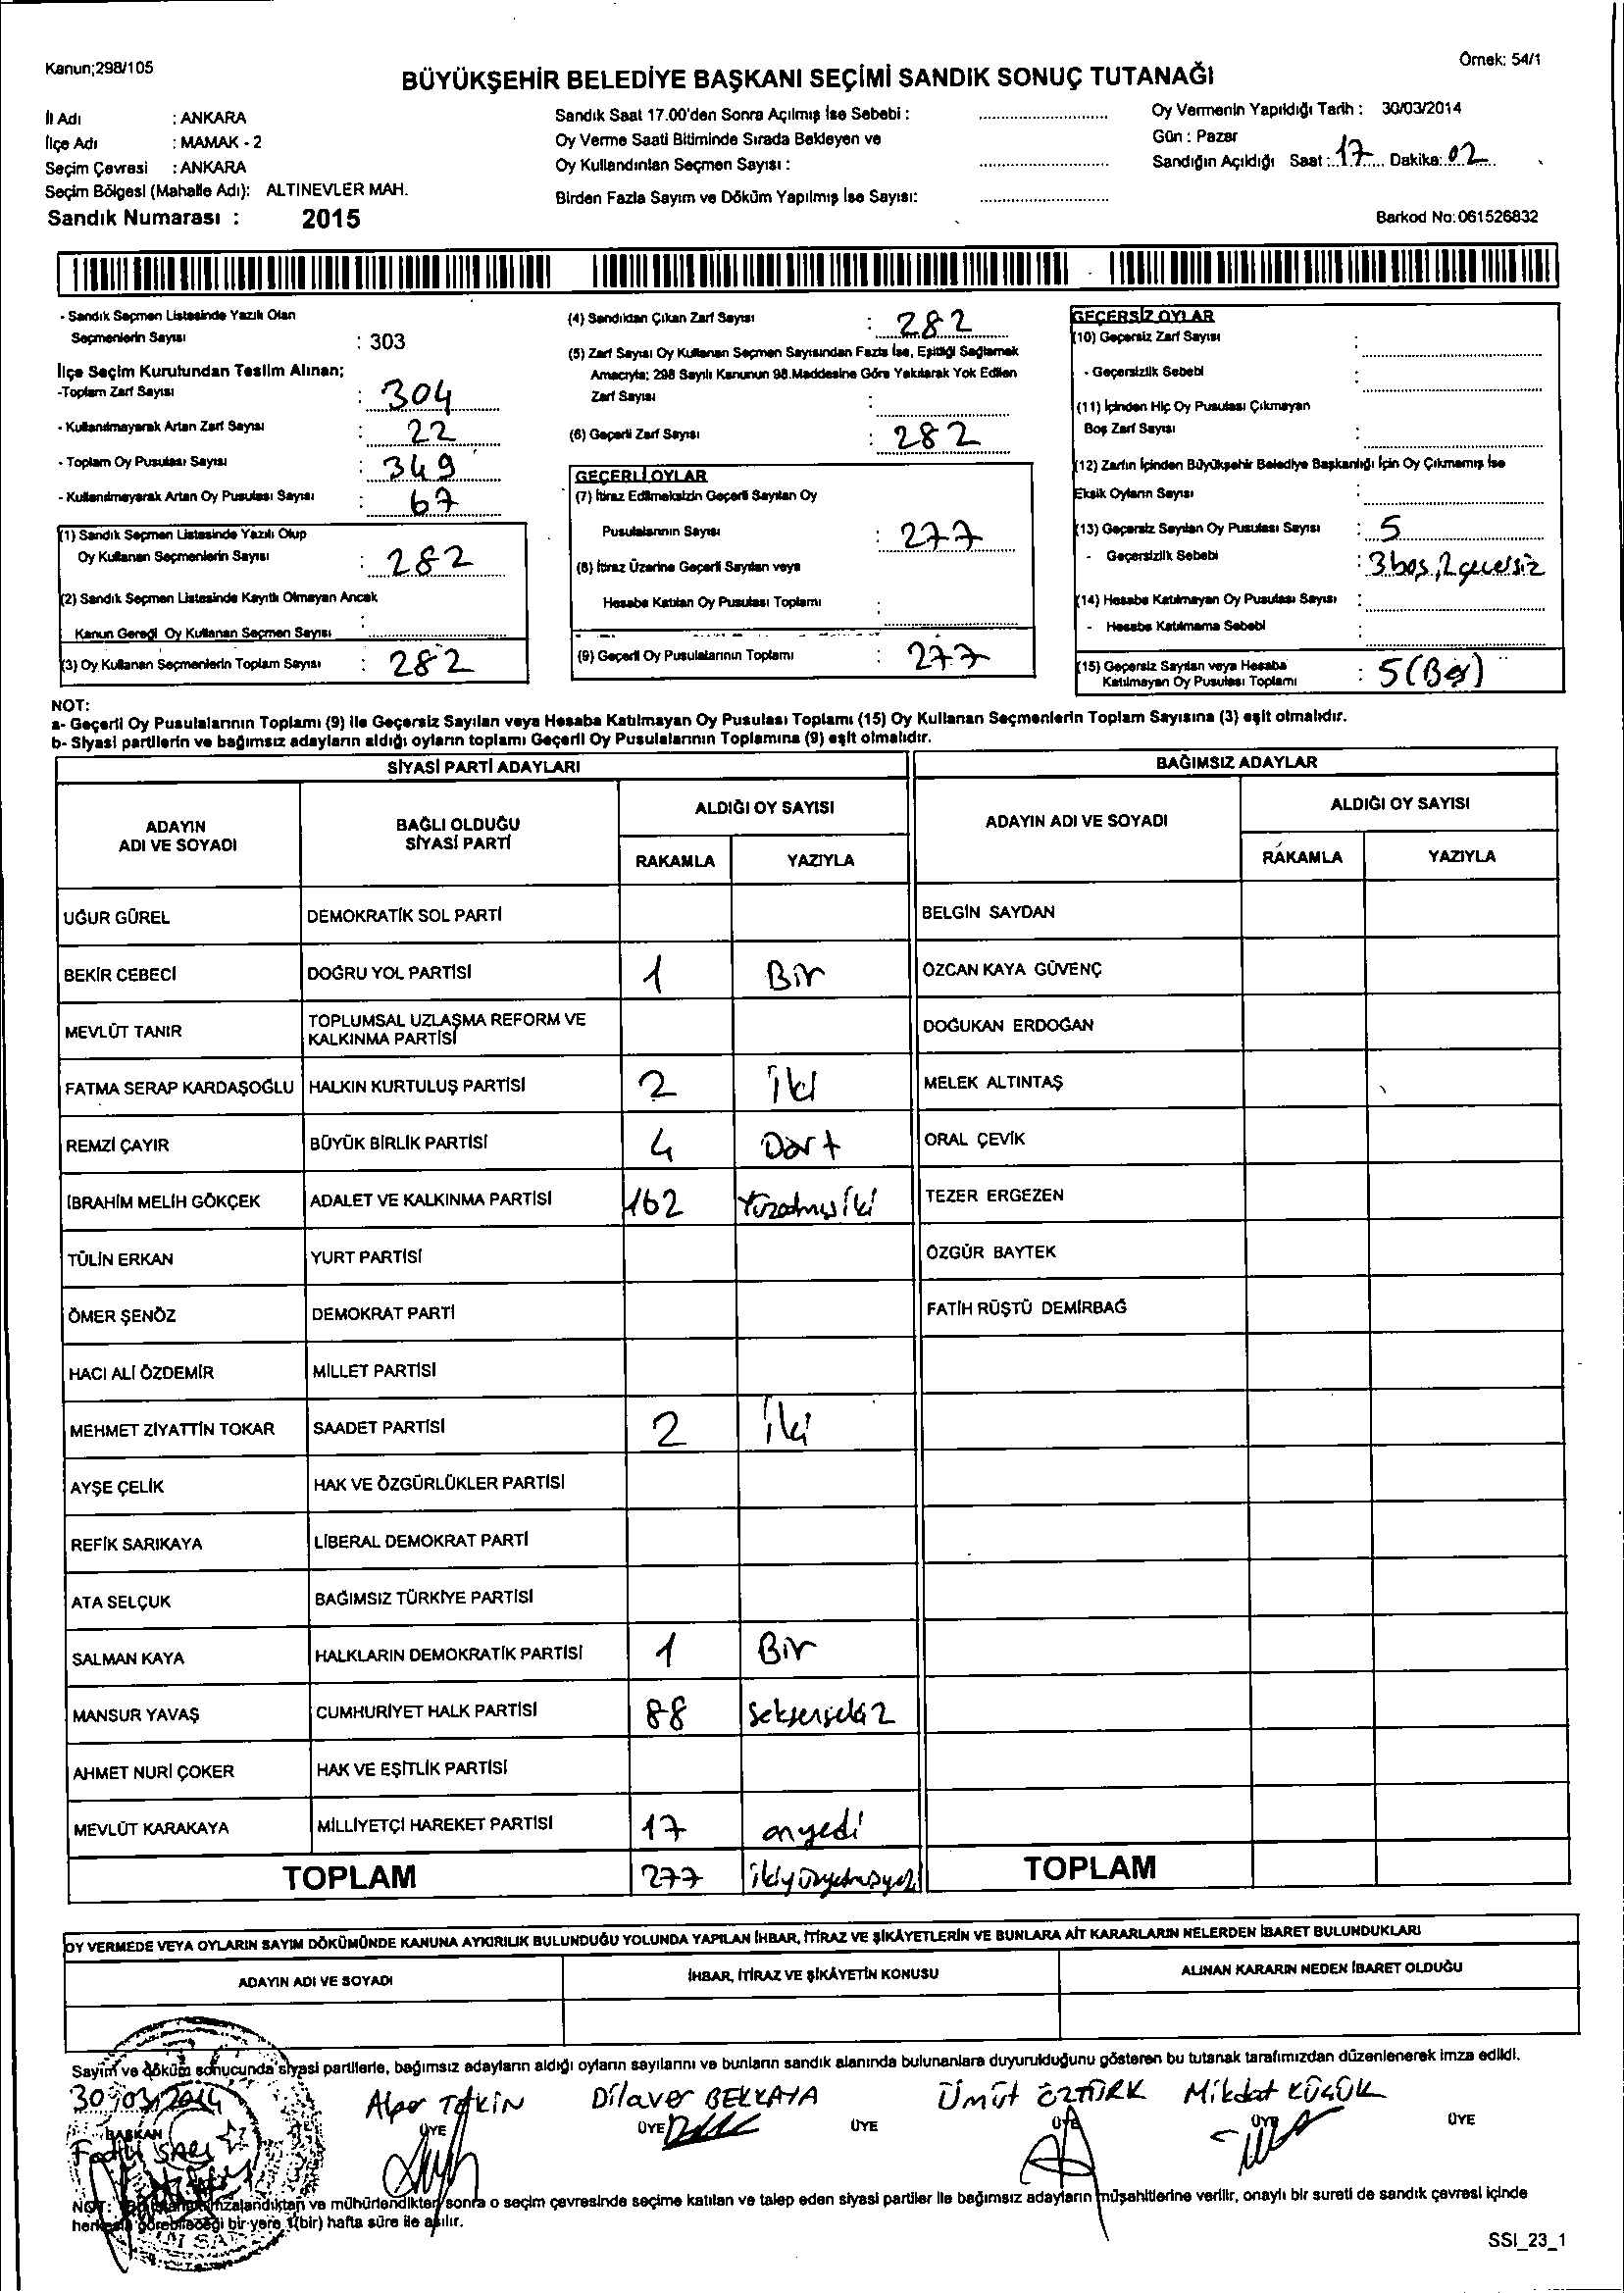 Kanun;298/105
Örnek: 54/1
BÜYÜKŞEHİR BELEDİYE BAŞKANI SEÇİMİ SANDIK SONUÇ TUTANAĞI
İl Adı : ANKARA
İlçe Adı : MAMAK - 2
Seçim Çevresi : ANKARA
Seçim Bölgesi (Mahalle Adı): ALTINEVLER MAH.
Sandık Numarası : 2015
Sandık Saat 17.00'den Sonra Açılmış İse Sebebi :
Oy Verme Saati Bitiminde Sırada Bekleyen ve
Oy Kullandırılan Seçmen Sayısı :
Birden Fazla Sayım ve Döküm Yapılmış İse Sayısı:
Oy Vermenin Yapıldığı Tarih : 30/03/2014
Gün : Pazar
Sandığın Açıldığı Saat : 17 Dakika: 02
Barkod No: 061526832
- Sandık Seçmen Listesinde Yazılı Olan
Seçmenlerin Sayısı : 303
İlçe Seçim Kurulundan Teslim Alınan;
-Toplam Zarf Sayısı : 304
- Kullanılmayarak Artan Zarf Sayısı : 22
- Toplam Oy Pusulası Sayısı : 349
- Kullanılmayarak Artan Oy Pusulası Sayısı : 67
(1) Sandık Seçmen Listesinde Yazılı Olup
Oy Kullanan Seçmenlerin Sayısı : 282
(2) Sandık Seçmen Listesinde Kayıtlı Olmayan Ancak
Kanun Gereği Oy Kullanan Seçmen Sayısı :
(3) Oy Kullanan Seçmenlerin Toplam Sayısı : 282
(4) Sandıktan Çıkan Zarf Sayısı : 282
(5) Zarf Sayısı Oy Kullanan Seçmen Sayısından Fazla İse, Eşitliği Sağlamak
Amacıyla; 298 Sayılı Kanunun 98.Maddesine Göre Yakılarak Yok Edilen
Zarf Sayısı :
(6) Geçerli Zarf Sayısı : 282
GEÇERLİ OYLAR
(7) İtiraz Edilmeksizin Geçerli Sayılan Oy
Pusulalarının Sayısı : 277
(8) İtiraz Üzerine Geçerli Sayılan veya
Hesaba Katılan Oy Pusulası Toplamı :
(9) Geçerli Oy Pusulalarının Toplamı : 277
GEÇERSİZ OYLAR
(10) Geçersiz Zarf Sayısı :
- Geçersizlik Sebebi :
(11) İçinden Hiç Oy Pusulası Çıkmayan
Boş Zarf Sayısı :
(12) Zarfın İçinden Büyükşehir Belediye Başkanlığı İçin Oy Çıkmamış İse
Eksik Oyların Sayısı :
(13) Geçersiz Sayılan Oy Pusulası Sayısı : 5
- Geçersizlik Sebebi : 3 boş, 2 geçersiz
(14) Hesaba Katılmayan Oy Pusulası Sayısı :
- Hesaba Katılmama Sebebi :
(15) Geçersiz Sayılan veya Hesaba
Katılmayan Oy Pusulası Toplamı : 5 (Beş)
NOT:
a- Geçerli Oy Pusulalarının Toplamı (9) ile Geçersiz Sayılan veya Hesaba Katılmayan Oy Pusulası Toplamı (15) Oy Kullanan Seçmenlerin Toplam Sayısına (3) eşit olmalıdır.
b- Siyasi partilerin ve bağımsız adayların aldığı oyların toplamı Geçerli Oy Pusulalarının Toplamına (9) eşit olmalıdır.
SİYASİ PARTİ ADAYLARI
BAĞIMSIZ ADAYLAR
ADAYIN
ADI VE SOYADI
BAĞLI OLDUĞU
SİYASİ PARTİ
ALDIĞI OY SAYISI
RAKAMLA YAZIYLA
ADAYIN ADI VE SOYADI
ALDIĞI OY SAYISI
RAKAMLA YAZIYLA
UĞUR GÜREL DEMOKRATİK SOL PARTİ BELGİN SAYDAN
BEKİR CEBECİ DOĞRU YOL PARTİSİ 1 Bir ÖZCAN KAYA GÜVENÇ
MEVLÜT TANIR TOPLUMSAL UZLAŞMA REFORM VE
KALKINMA PARTİSİ DOĞUKAN ERDOĞAN
FATMA SERAP KARDAŞOĞLU HALKIN KURTULUŞ PARTİSİ 2 iki MELEK ALTINTAŞ
REMZİ ÇAYIR BÜYÜK BİRLİK PARTİSİ 4 Dört ORAL ÇEVİK
İBRAHİM MELİH GÖKÇEK ADALET VE KALKINMA PARTİSİ 162 Yüzatmış iki TEZER ERGEZEN
TÜLİN ERKAN YURT PARTİSİ ÖZGÜR BAYTEK
ÖMER ŞENÖZ DEMOKRAT PARTİ FATİH RÜŞTÜ DEMİRBAĞ
HACI ALİ ÖZDEMİR MİLLET PARTİSİ
MEHMET ZİYATTİN TOKAR SAADET PARTİSİ 2 İki
AYŞE ÇELİK HAK VE ÖZGÜRLÜKLER PARTİSİ
REFİK SARIKAYA LİBERAL DEMOKRAT PARTİ
ATA SELÇUK BAĞIMSIZ TÜRKİYE PARTİSİ
SALMAN KAYA HALKLARIN DEMOKRATİK PARTİSİ 1 Bir
MANSUR YAVAŞ CUMHURİYET HALK PARTİSİ 88 Seksensekiz
AHMET NURİ ÇOKER HAK VE EŞİTLİK PARTİSİ
MEVLÜT KARAKAYA MİLLİYETÇİ HAREKET PARTİSİ 17 onyedi
TOPLAM 277 ikiyüzyetmişyedi TOPLAM
OY VERMEDE VEYA OYLARIN SAYIM DÖKÜMÜNDE KANUNA AYKIRILIK BULUNDUĞU YOLUNDA YAPILAN İHBAR, İTİRAZ VE ŞİKÂYETLERİN VE BUNLARA AİT KARARLARIN NELERDEN İBARET BULUNDUKLARI
ADAYIN ADI VE SOYADI İHBAR, İTİRAZ VE ŞİKÂYETİN KONUSU ALINAN KARARIN NEDEN İBARET OLDUĞU
Sayım ve döküm sonucunda siyasi partilerle, bağımsız adayların aldığı oyların sayılarını ve bunların sandık alanında bulunanlara duyurulduğunu gösteren bu tutanak tarafımızdan düzenlenerek imza edildi.
30/03/2014 Alper TEKİN Dilaver BEKKAYA Ümüt ÖZTÜRK Mikdat KÜÇÜK
BAŞKAN ÜYE ÜYE ÜYE ÜYE ÜYE ÜYE
Fatih SARI
NOT: imzalandıktan ve mühürlendikten sonra o seçim çevresinde seçime katılan ve talep eden siyasi partiler ile bağımsız adayların müşahitlerine verilir, onaylı bir sureti de sandık çevresi içinde
herkesin görebileceği bir yere 1(bir) hafta süre ile asılır.
SSI_23_1